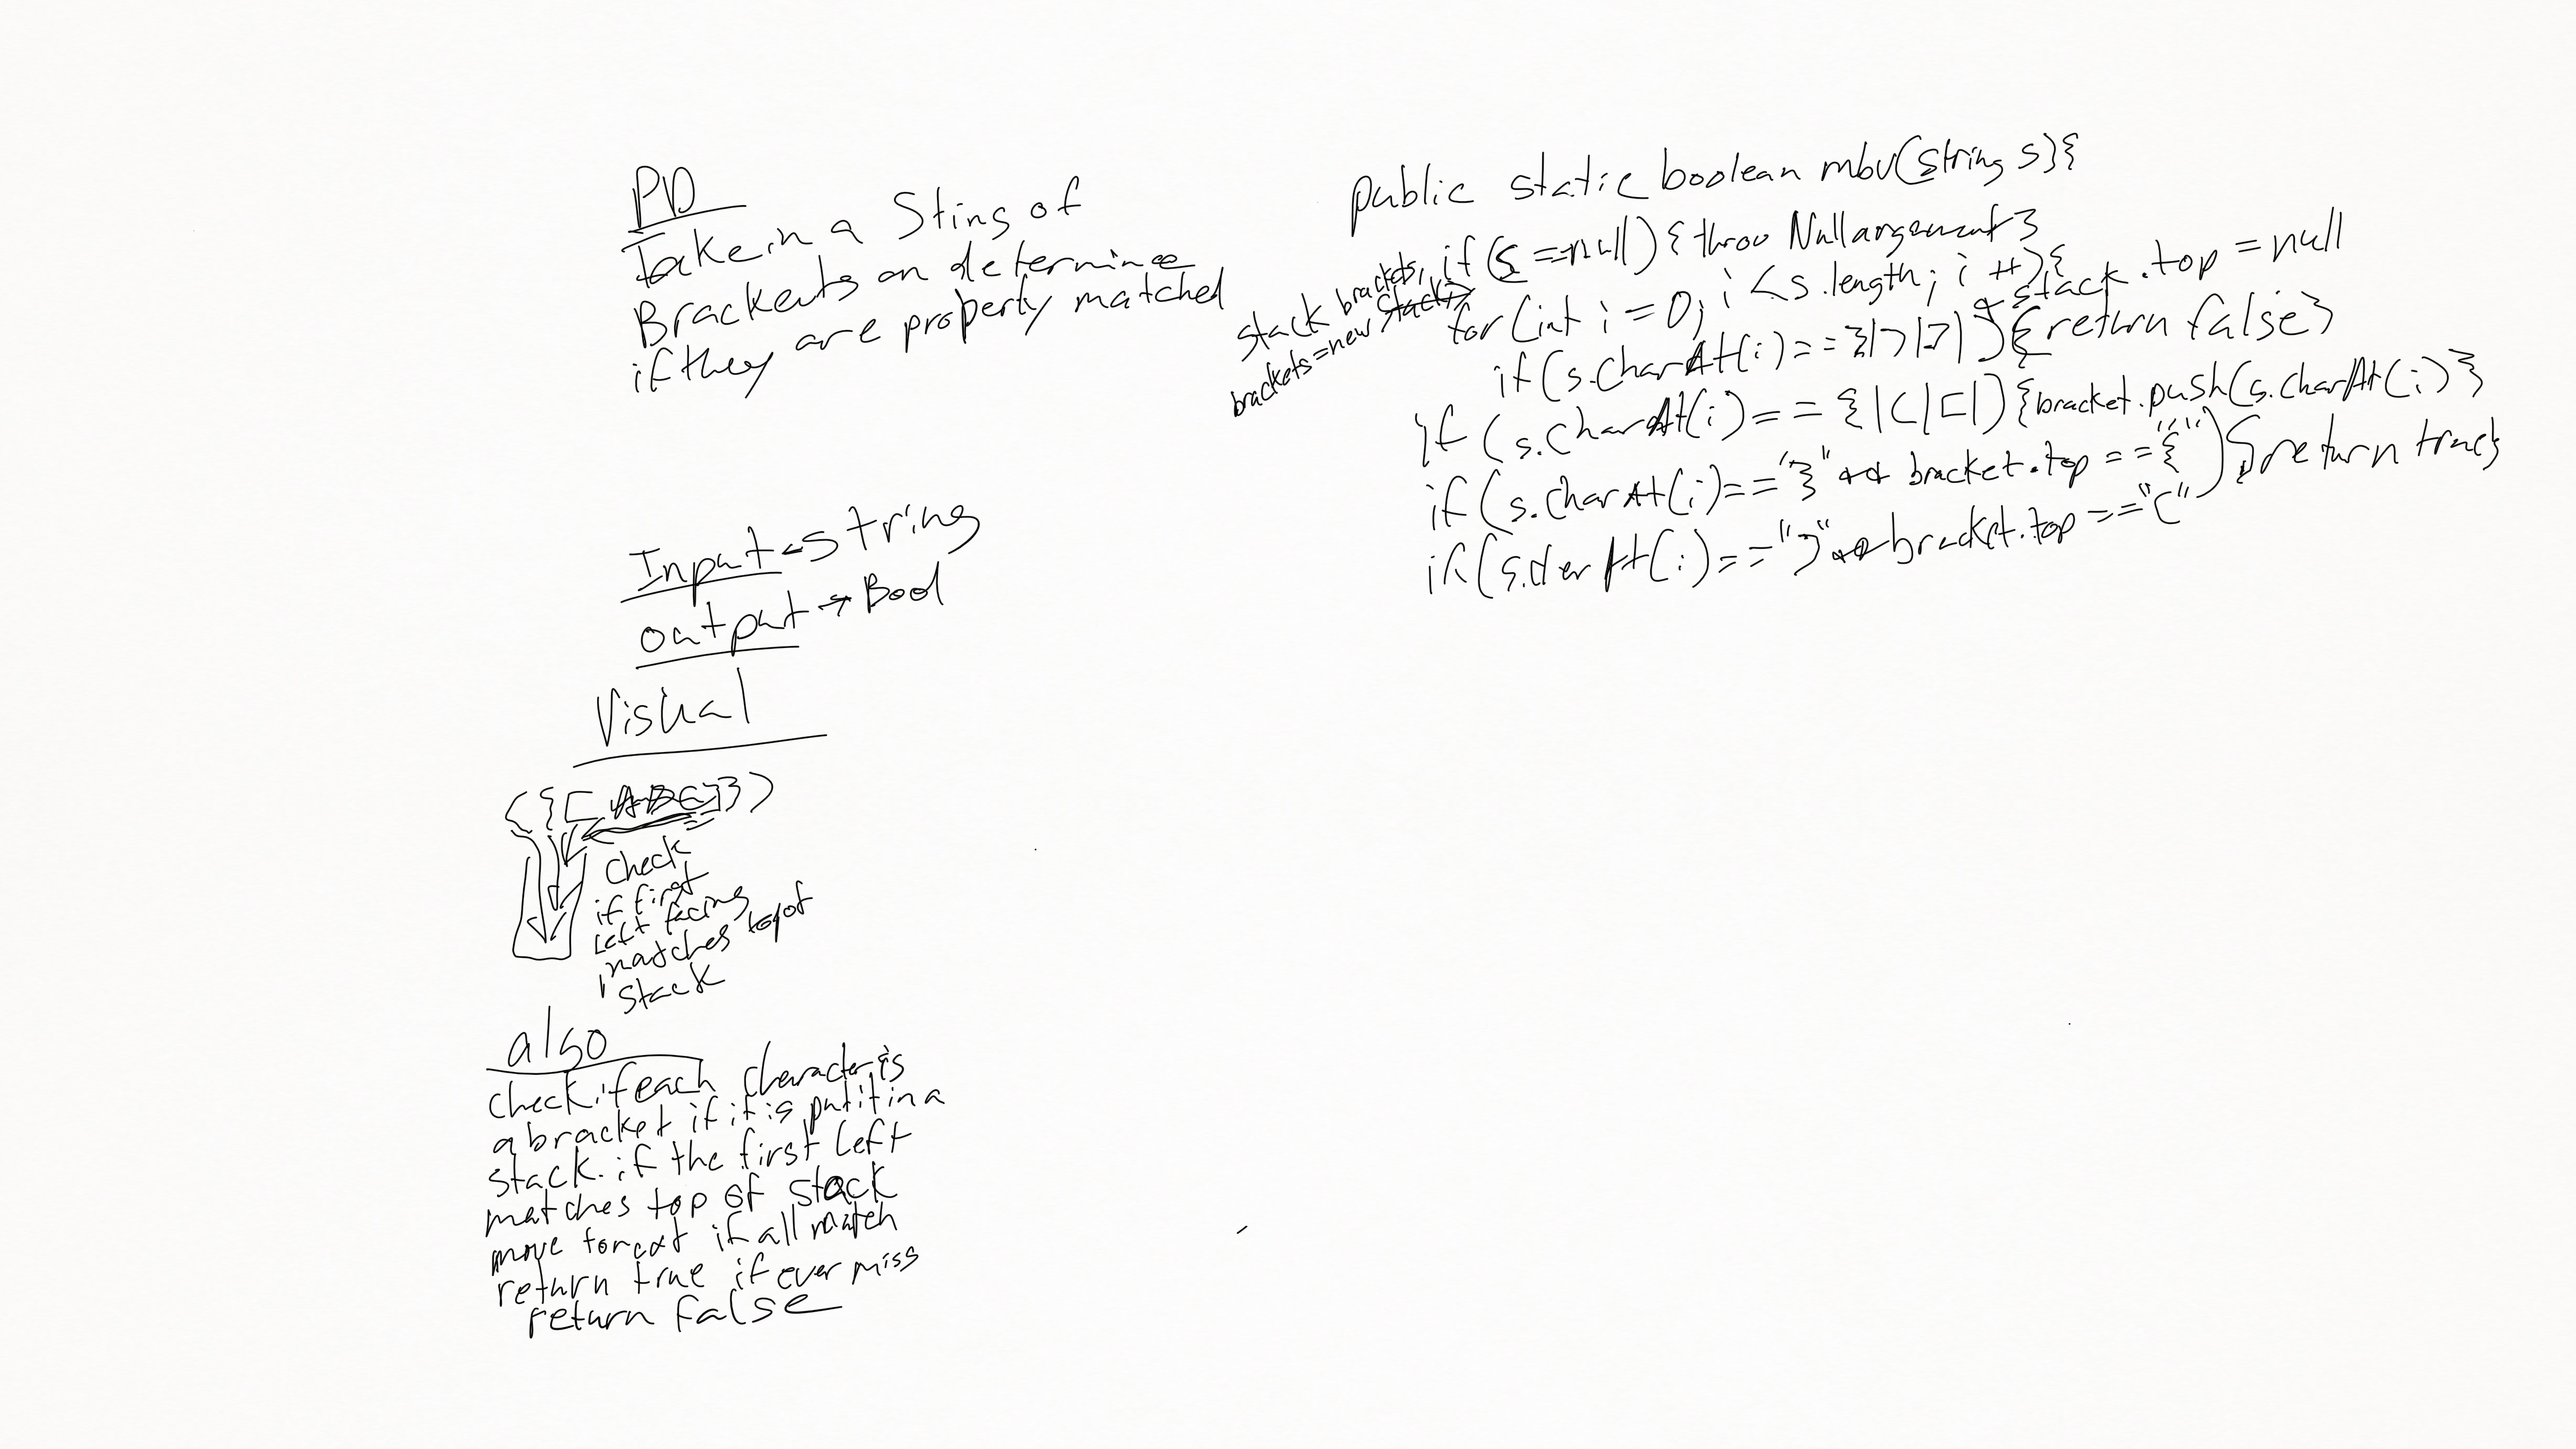 PD
Take in a Sting of
Brackents on determinee
if they are property matched
Input <- string
output -> Bool
Visual
({[ }})
Check
if first
left facing
matches top of
stack
algo
check if each character is
a bracket if it is put it in a
stack. if the first left
matches top of stack
move if all match
return true if ever miss
return false
public static boolean mbv(string s){
if (s ==null) { throw Nullargement }
stack brackets,
brackets=new stack
for (int i = 0; i < s.length; i ++){
if (s.CharAt(i)== }|)|]| & stack.top = null ){return false}
if (s.CharAt(i)== {|(|[|) {bracket.push(s.charAt(i)}
if (s.CharAt(i)=="}" && bracket.top =="{" ){return true}
if (s.CherAt(i)==")" && bracket.top =="("